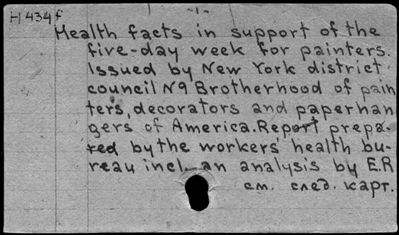 H434f
-1-
Health facts in support of the
five-day week for painters.
Issued by New York district
council №9 Brotherhood of pain
ters, decorators and paperhan
gers of America. Report prepa-
red by the workers' health bu-
reau incl. an analysis by E.R
см. след. карт.